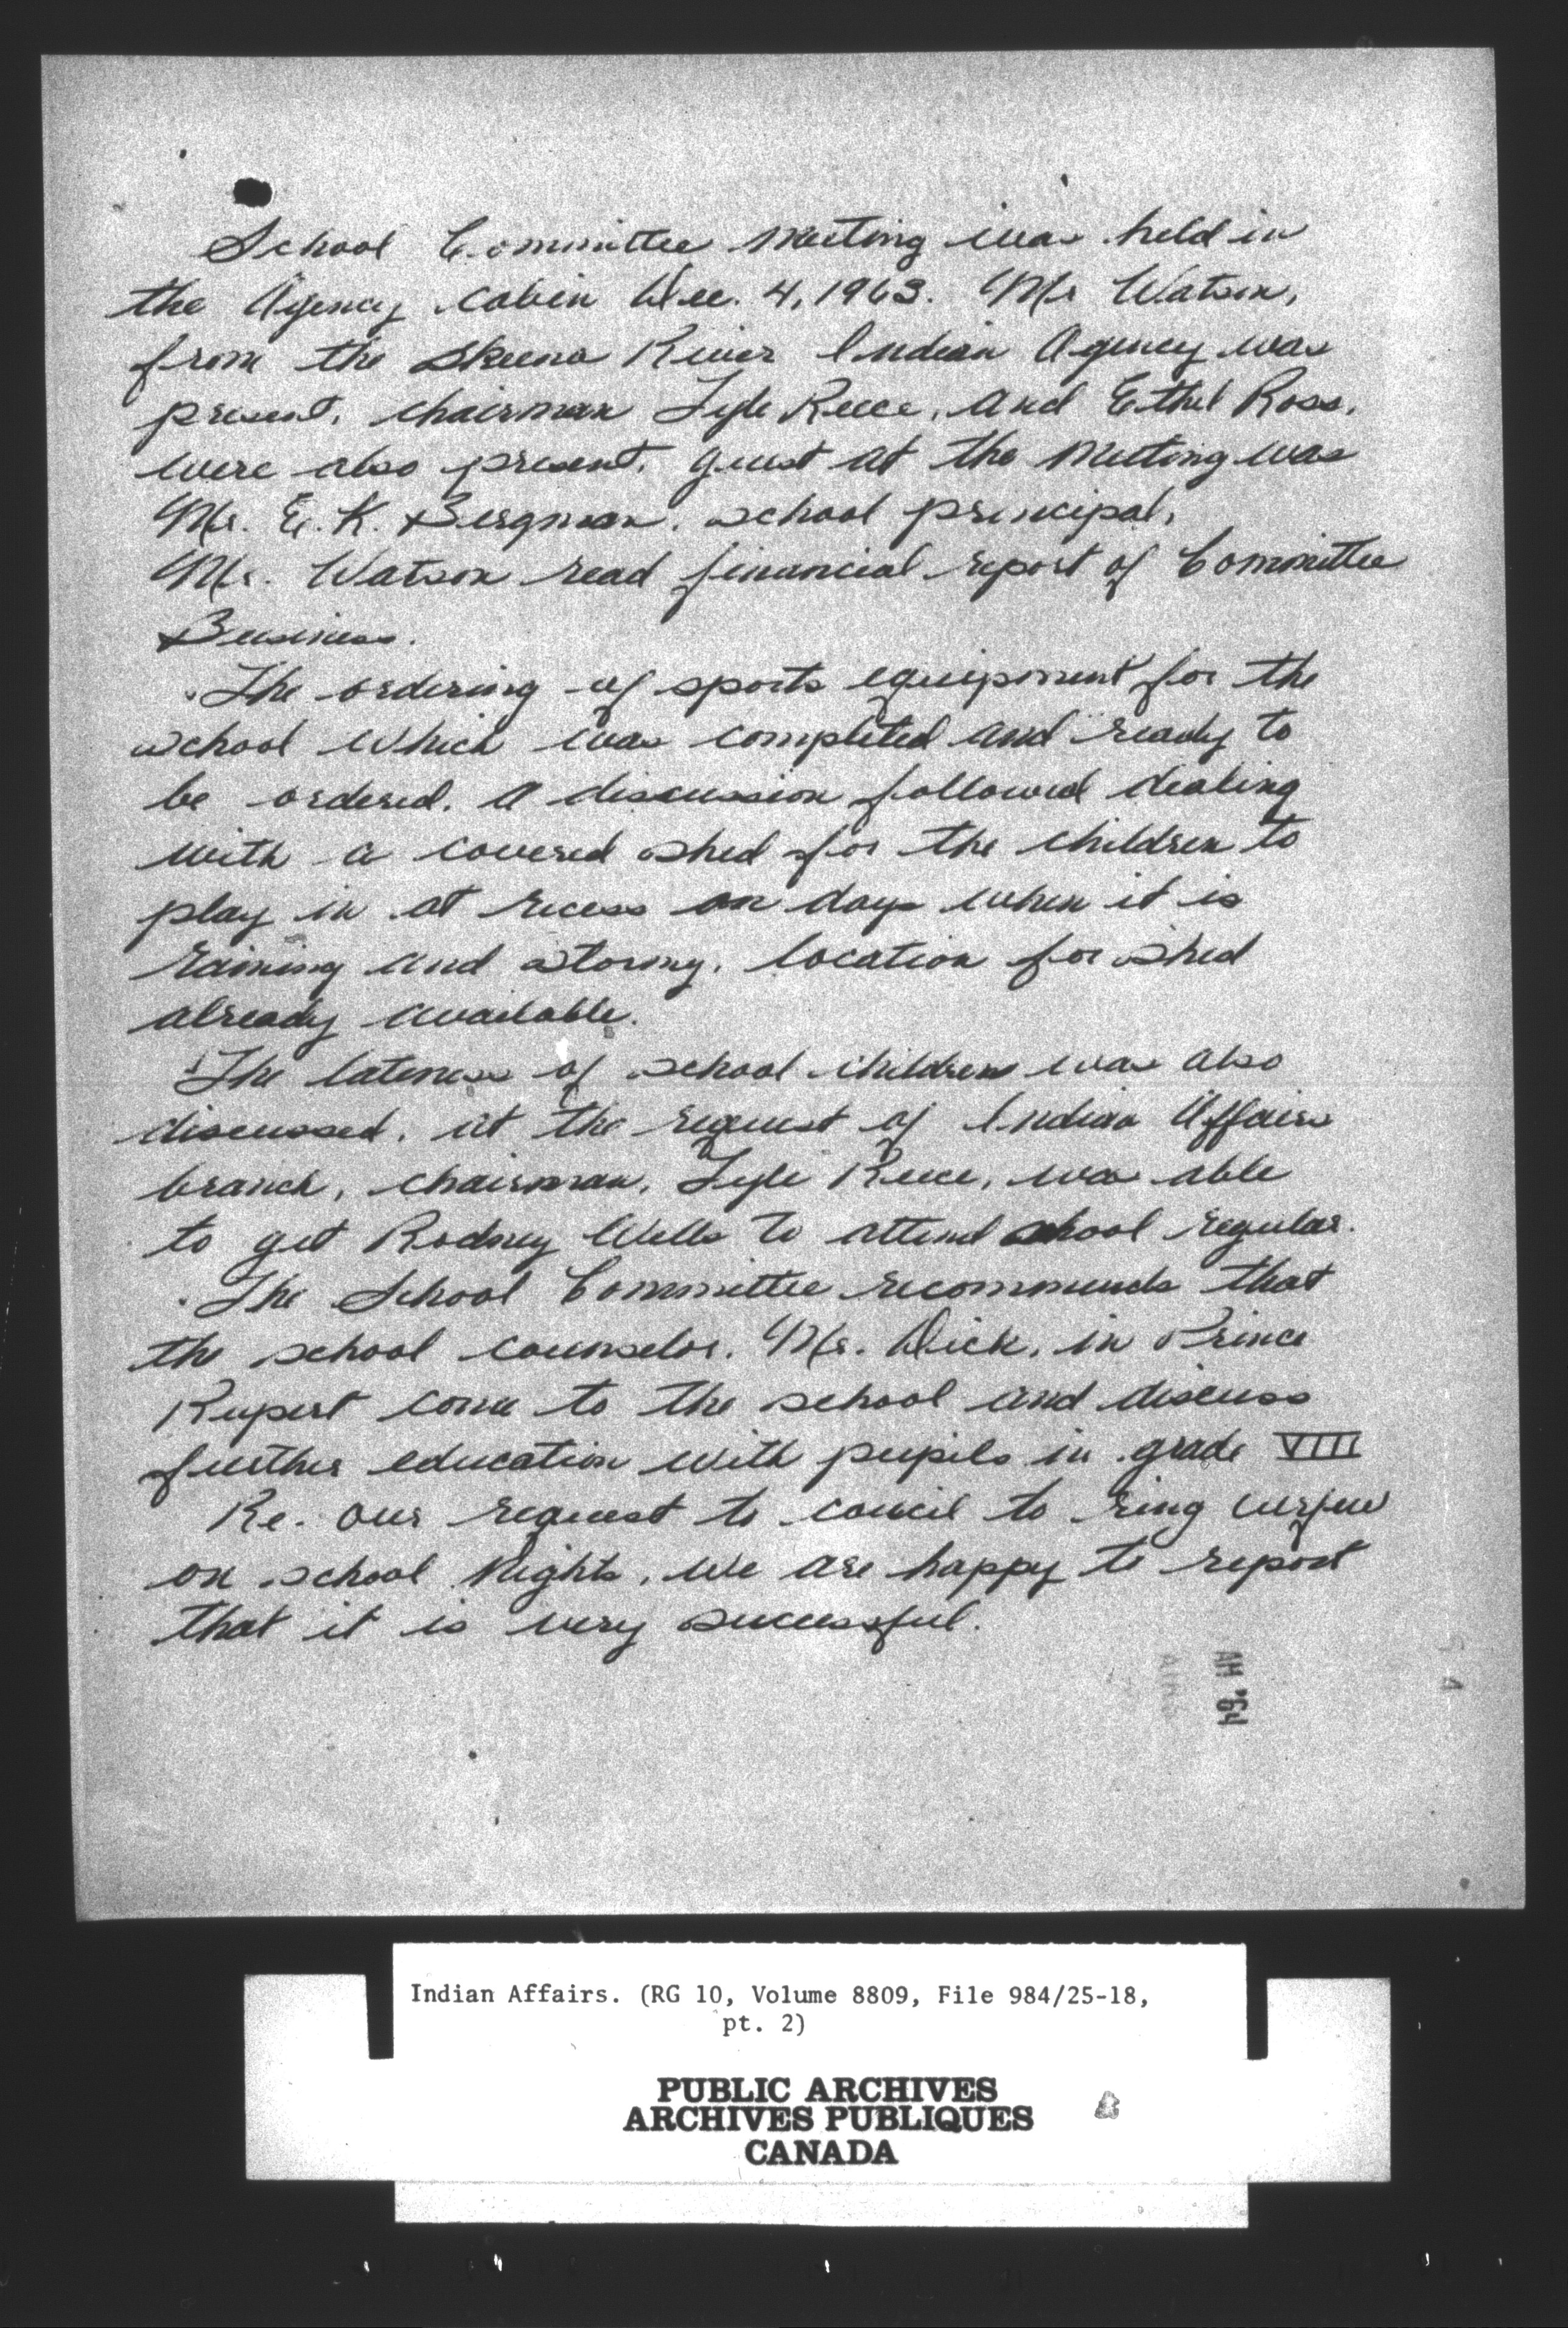 School Committee Meeting was held in
the Agency cabin Dec. 4, 1963. Mr Watson,
from the Skeena River Indian Agency was
present, chairman Lyle Reece, and Ethel Ross,
were also present. Guest at the Meeting was
Mr. E. K. Bergman, school principal.
Mr. Watson read financial report of Committee
Business.
The ordering of sports equipment for the
school which was completed and ready to
be ordered. A discussion followed dealing
with a covered shed for the children to
play in at recess on days when it is
raining and stormy. Location for shed
already available.
The lateness of school children was also
discussed. At the request of Indian Affairs
branch, chairman, Lyle Reece, was able
to get Rodney Wells to attend school regular.
The School Committee recommends that
the school counselor, Mr. Dick, in Prince
Rupert come to the school and discuss
further education with pupils in grade VIII
Re. our request to council to ring curfew
on school Nights, we are happy to report
that it is very successful.
AM '64
Indian Affairs. (RG 10, Volume 8809, File 984/25-18,
pt. 2)
PUBLIC ARCHIVES
ARCHIVES PUBLIQUES
CANADA